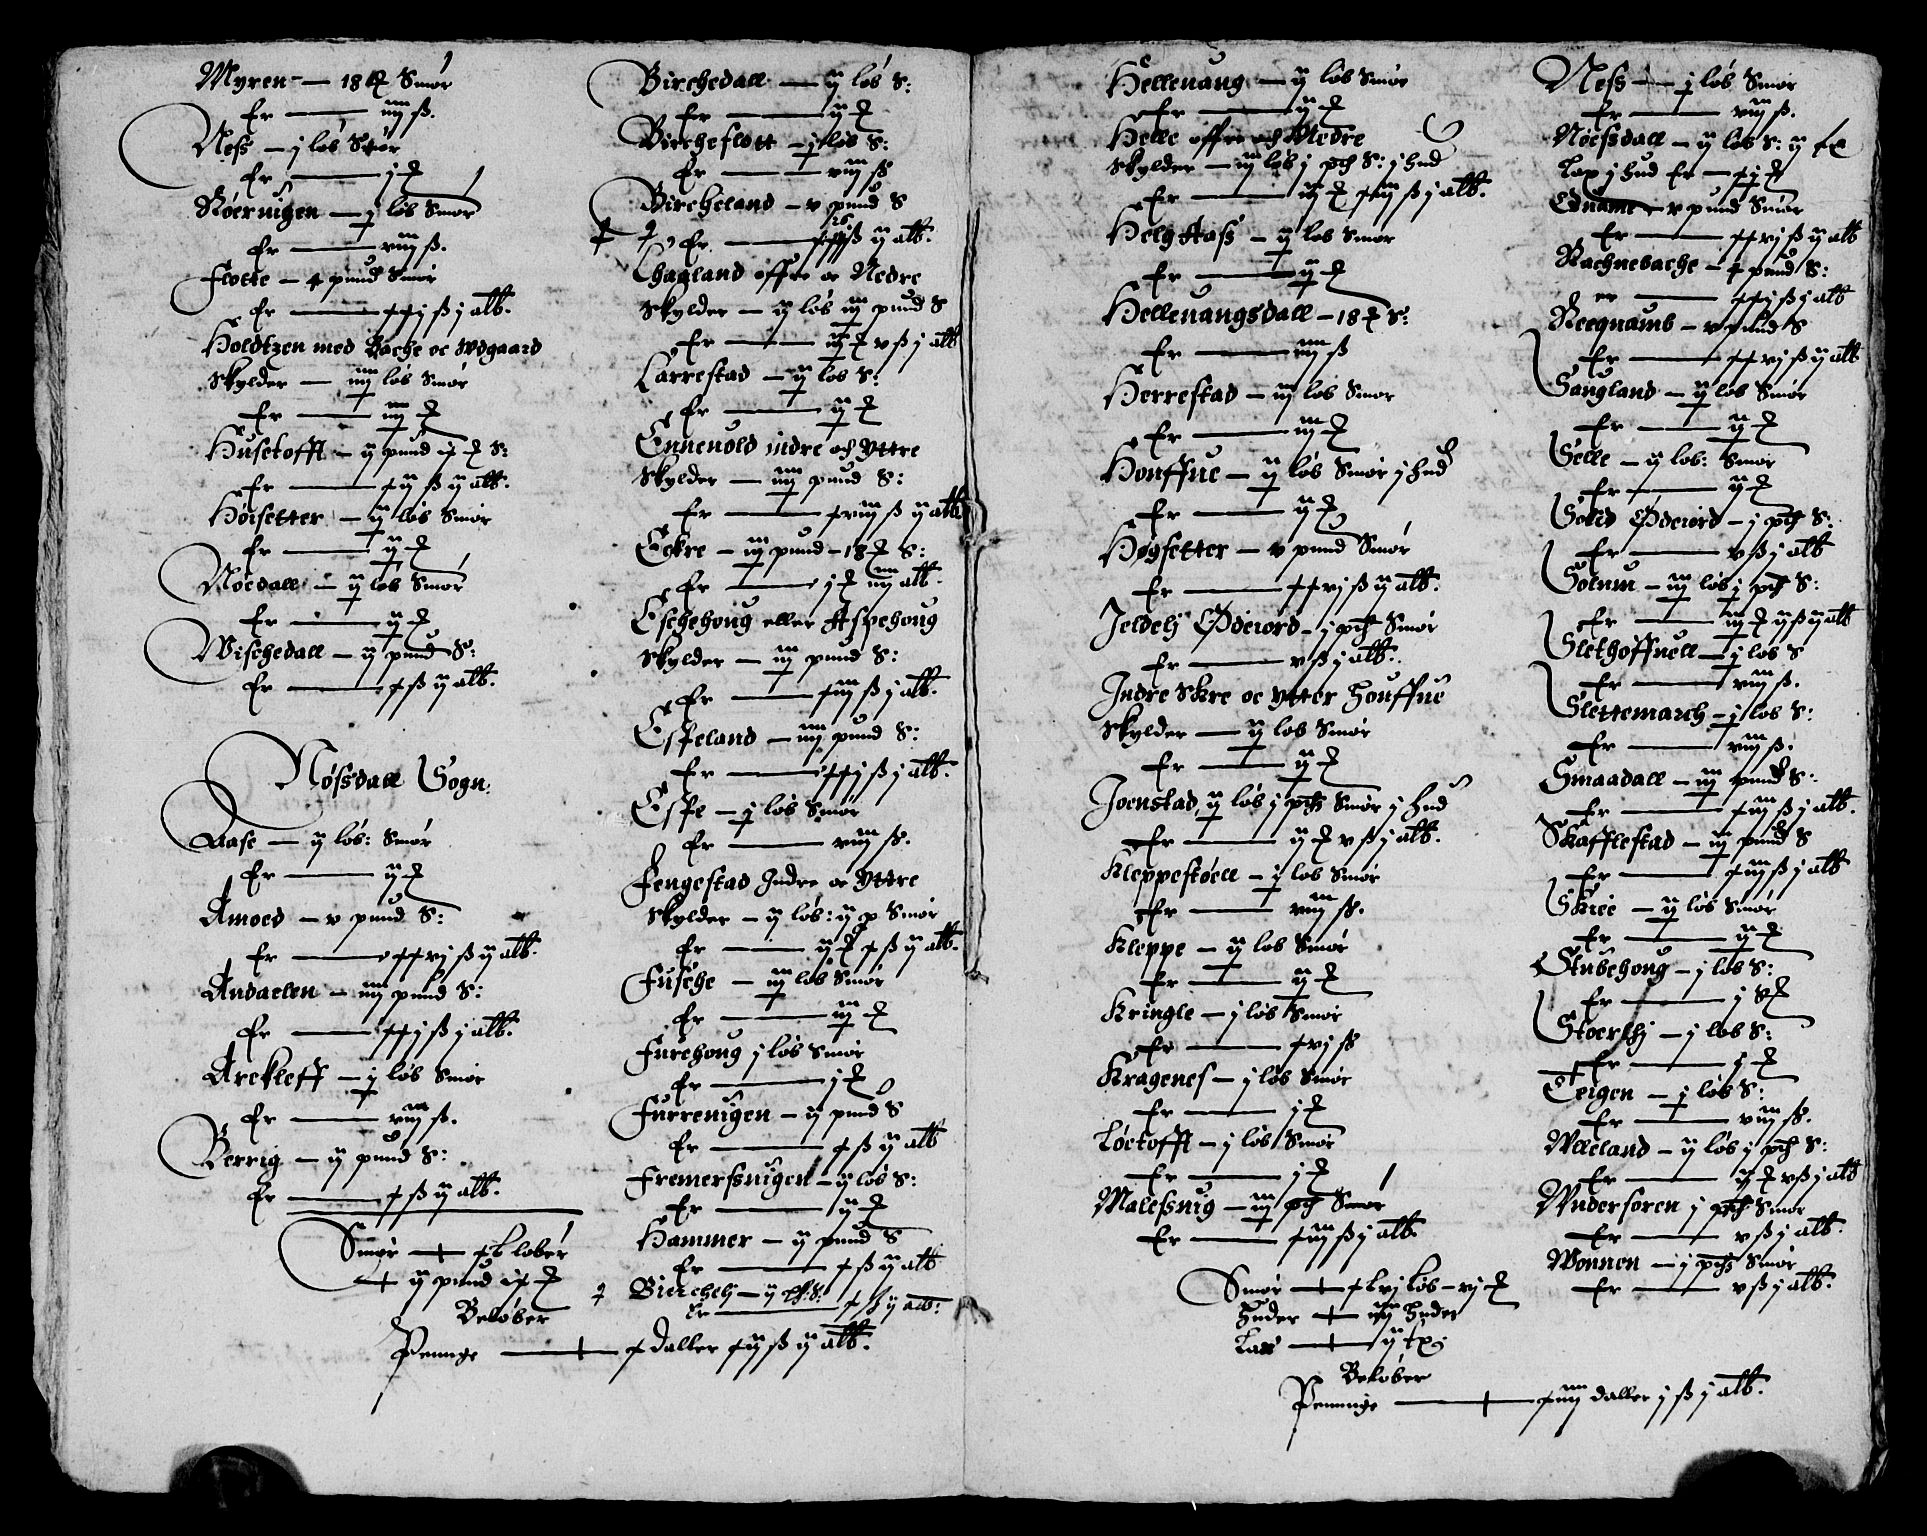 Myren — 18 ℔ Smør
Er — iiij ß.
Ness — j løb Smør
Er — j ℔
Røernigen — j løb Smør
Er — viij ß.
Flotte — pund Smør
Er — xxj ß j alb.
Holdtzen med Bache oc Wdgaard
skylder — iiij løb Smør
Er — iiij
Husetofft — ij pund S:
Er — xij ß ij alb.
Høisetter — ij løb Smør
Er — ij
Noedall — ij løb Smør
Er — ij
Wischedall — ij pund S:
Er — x ß ij alb.
Nøssdall Sogn.
Aase — ij løb: Smør
Er — ij
Amoed — v pund S:
Er — xxvj ß ij alb.
Andaelen — iiij pund S:
Er — xxj ß j alb.
Arekleff — j løb Smør
Er — viij ß.
Berrig — ij pund S:
Er — x ß ij alb.
Smør — løber
ij pund
Beløber
Penninge — x daller xij ß ij alb.
Birchedall — ij løb S:
Er — ij
Bircheflott — j løb S:
Er — viij ß
Bircheland — v pund S
Er — ß ij alb.
Chagland offre oc Nedre
skylder — ij løb iij pund S
Er — ij v ß j alb
Carrestad — ij løb S:
Er — ij
Ennenold indre och yttre
skylder — iiij pund S:
Er — xviij ß ij alb
Eckre — iij pund — 18 ℔ S:
Er — j iiij alb.
Eschehoug eller Aspehoug
skylder — iij pund S:
Er — xiij ß j alb.
Espeland — iiij pund S:
Er — xxj ß j alb.
Espe — j løb Smør
Er — viij ß.
Fengestad Indre oc yttre
skylder — ij løb: ij p Smør
Er — ij x ß ij alb.
Fusche — iij løb Smør
Er — iij
Furehoug j løb Smør
Er — j
Furrenigen — ij pund S
Er — x ß ij alb
Fremerssnigen — ij løb S:
Er — ij
Hammer — ij pund S
Er — x ß ij alb
Bierchelj — ij S:
Er — x ß ij alb:
Hellenang — ij løb Smør
Er — ij
Helle offre och Nedre
skylder — iij løb j pd S: j hud
Er — iij xiij ß j alb.
HelgHass — ij løb Smør
Er — ij
Hellenangsdall — 18 ℔ S:
Er — iiij ß
Herrestad — iij løb Smør
Er — iij
Houffue — ij løb Smør j hud
Er — ij
Høgsetter — v pund Smør
Er — xxvj ß ij alb.
Jeldelj Ødeiord — j pd Smør
Er — v ß j alb.
Indre Skre oc ytter Houffue
skylder — ij løb Smør
Er — ij
Joenstad, ij løb j pd Smør j hud
Er — ij v ß j alb.
Kleppestøell — j løb Smør
Er — viij ß.
Kleppe — ij løb Smør
Er — ij
Kringle — j løb Smør
Er — xvj ß
Kragenes — j løb Smør
Er — j
Løetofft — j løb Smør
Er — j
Malessnig — iij pd Smør
Er — xiij ß j alb.
Smør — løb — vj
Huder — iiij Huder
Lax — ij
Beløber
Penninge — daller j ß j alb.
Ness — j løb Smør
Er — viij ß.
Noessdall — ij løb S: ij
Lax j hud Er —
Ednami — v pund Smør
Er — xxvj ß ij alb
Rachnebache — pund S:
er — xxj ß j alb
Reegnamb — v pund S
Er — xxvj ß ij alb
Sangland — ij løb Smør
Er — ij
Selle — ij løb: Smør
Er — ij
Solid Ødeiord — j pd S:
Er — v ß j alb
Solum — iij løb j pd S:
Er — iij ij ß ij alb
Slethoffuell — j løb S
Er — viij ß.
Slettemarch — j løb S:
Er — viij ß.
Smaadall — iij pund S:
Er — xiij ß j alb.
Skafflestad — iij pund S
Er — xiij ß j alb
Skree — ij løb Smør
Er — ij
Stubehoug — j løb S:
Er — j
Stoerthj — j løb S:
Er — j
Teigen — j løb S:
Er — viij ß.
Wlleland — ij løb j pd S:
Er — ij v ß j alb
Wndersoren j pd Smør
Er — v ß j alb.
Wonnen — j pd Smør
Er — v ß j alb.